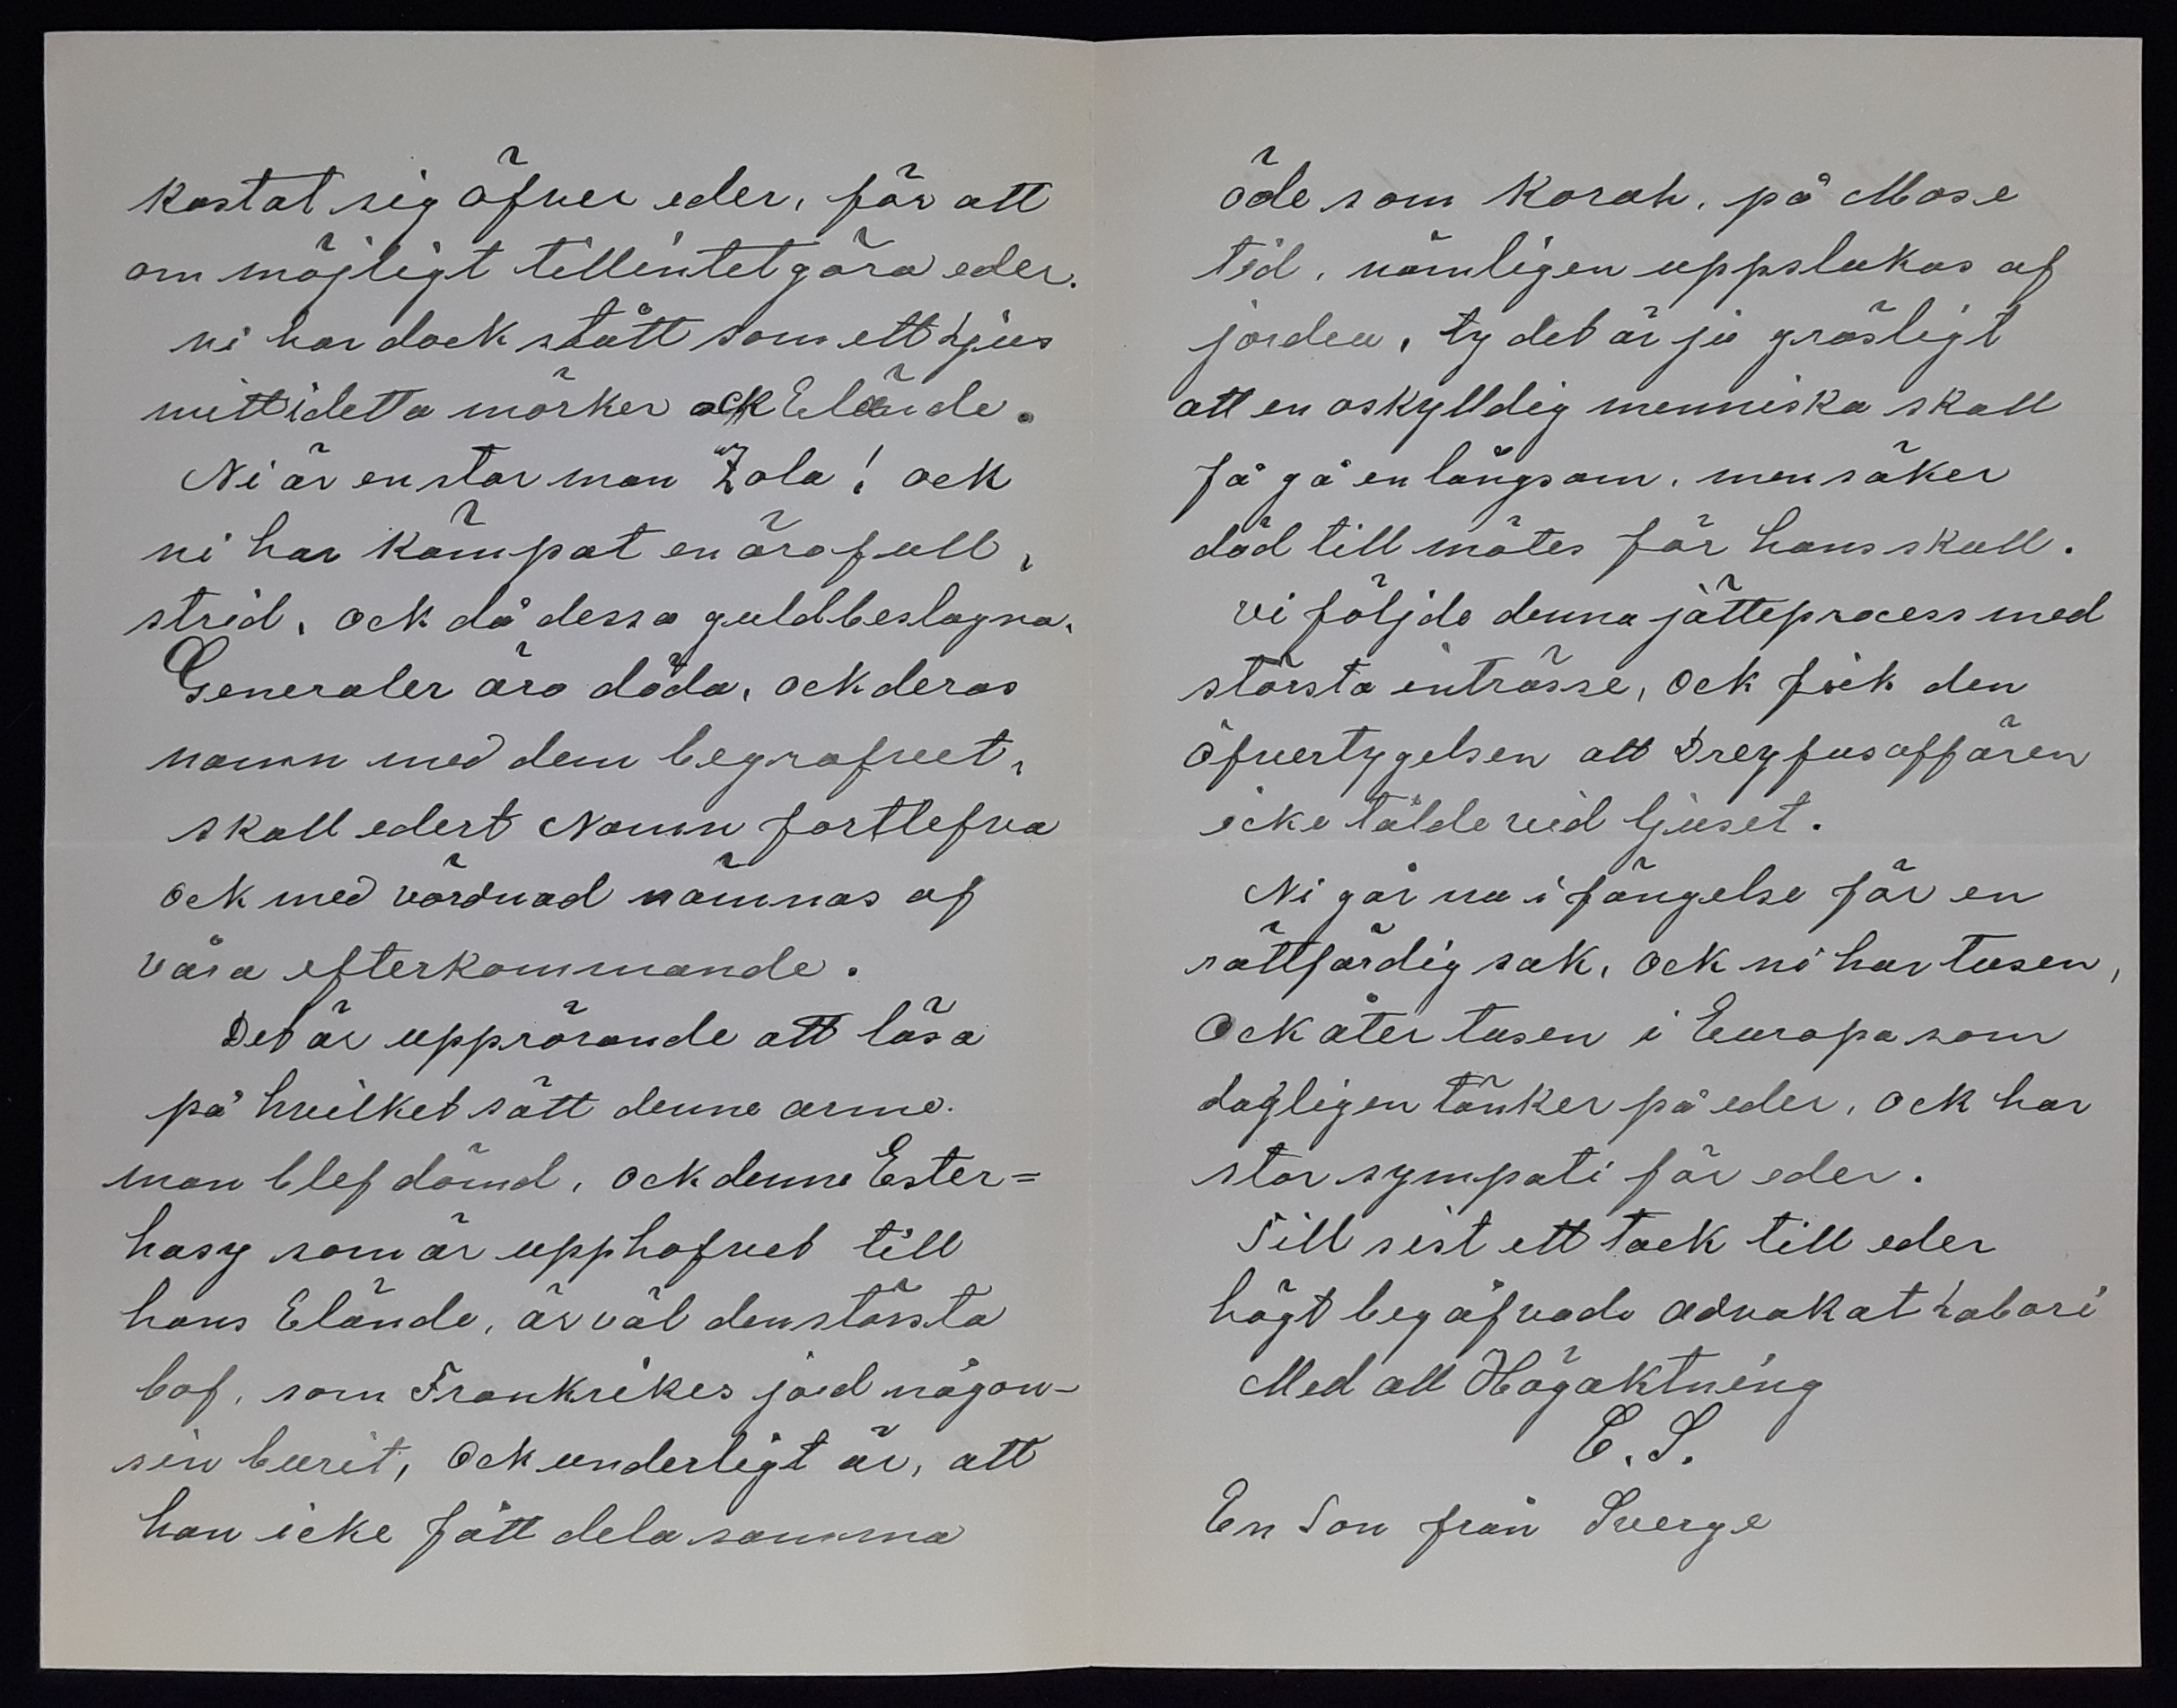 kastat sig öfver eder, för att
om möjligt tillintetgöra eder.
ni har dock stått som ett Ljus
mitt i detta mörker ock Elände.
Ni är en stor man Zola! ock
ni har kämpat en ärofull,
strid, ock då dessa guldbeslagna,
Generaler äro döda, ock deras
namn med dem begrafvet,
skall edert Namn fortlefva
ock med vördnad nämnas af
våra efterkommande.
Det är upprörande att läsa
på hvilket sätt denne arme.
man blef dömd, ock denne Ester=
hasy som är upphofvet till
hans Elände, är väl den största
bof, som Frankrikes jord någon-
sin burit, Ock underligt är, att
han icke fått dela samma
öde som Korah, på Mose
tid, nämligen uppslukas af
jorden, ty det är ju gräsligt
att en oskylldig menniska skall
få gå en långsom, men säker
död till mötes för hans skull.
vi följde denna jätteprocess med
största inträsse, Ock fick den
öfvertygelsen att Dreyfusaffären
icke tålde vid ljuset.
Ni går nu i fängelse för en
rättfärdig sak, Ock ni har tusen,
Ock åter tusen i Europa som
dagligen tänker på eder, Ock har
stor sympati för eder.
Till sist ett tack till eder
högt begåfvade advokat Labori
Med all Högaktning
E. S.
En Son från Sverge